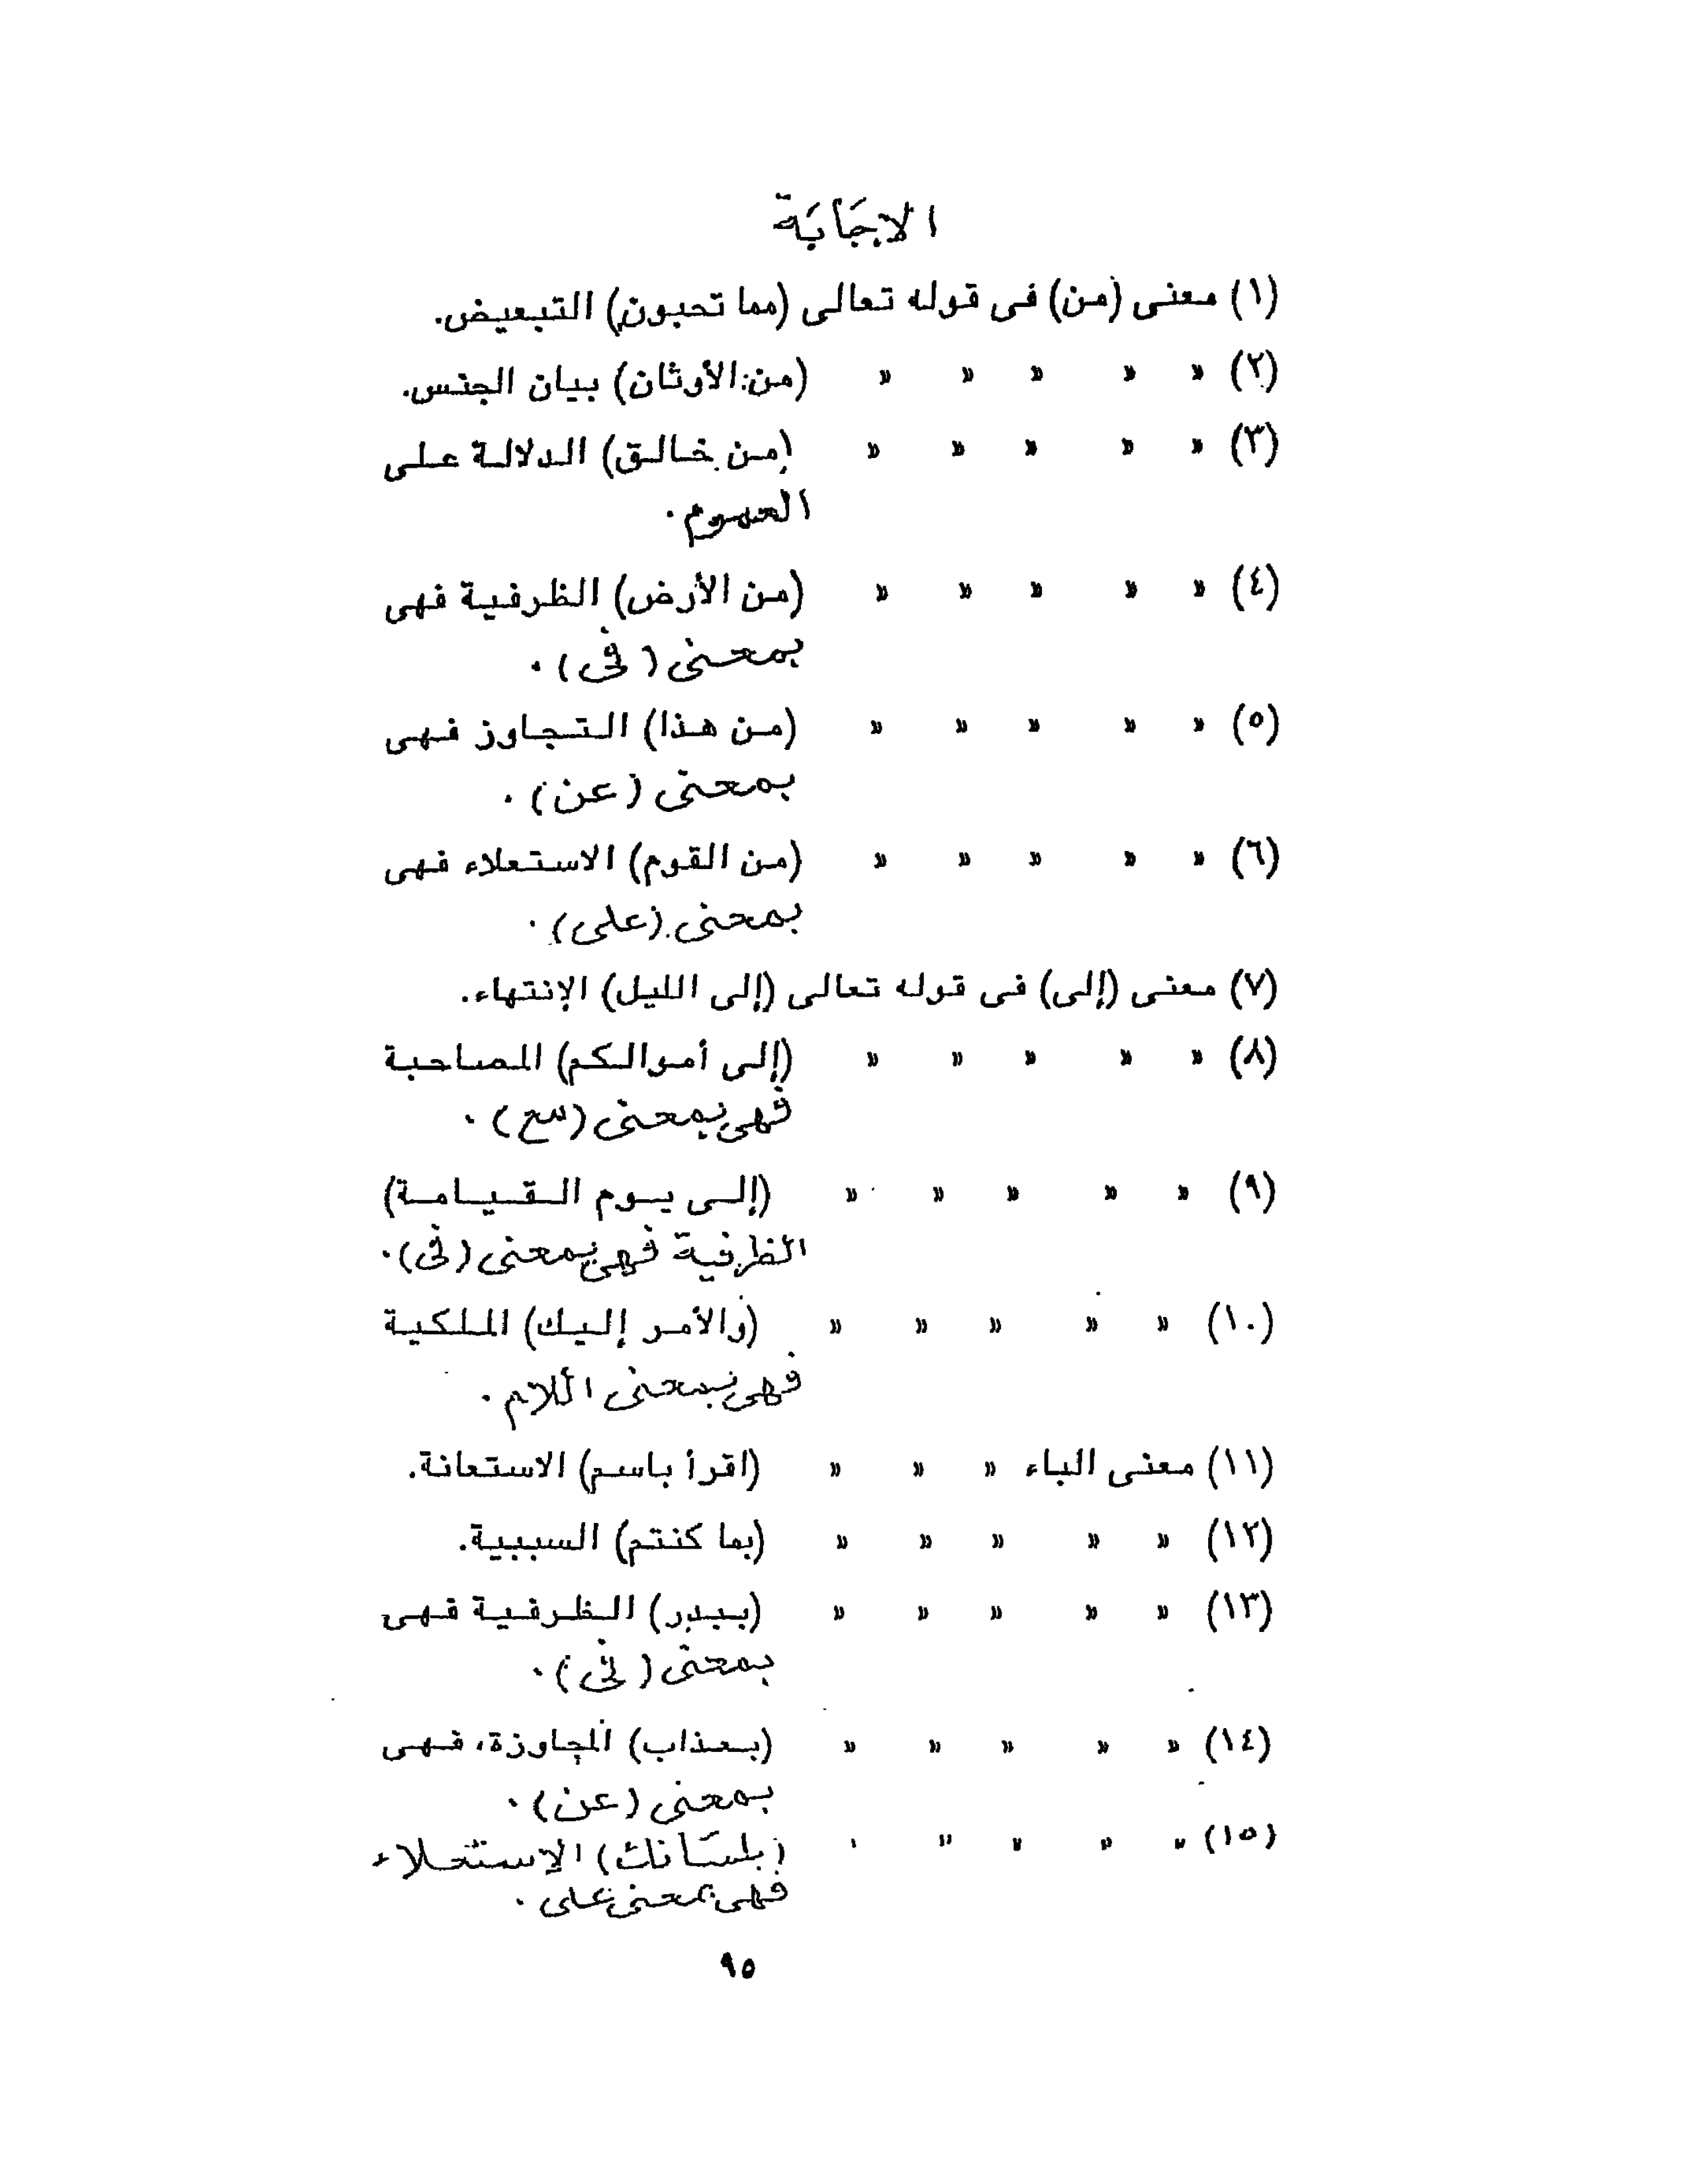 الاجَابَة
(١) معنى (من) فى قوله تعالى (مما تحبون) التبعيض.
(٢) » » » » » (من الأوثان) بيان الجنس.
(٣) » » » » » (من خالق) الدلالة على
العموم.
(٤) » » » » » (من الأرض) الظرفية فهى
بمعنى (فى).
(٥) » » » » » (من هذا) التجاوز فهى
بمعنى (عن).
(٦) » » » » » (من القوم) الاستعلاء فهى
بمعنى (على).
(٧) معنى (إلى) فى قوله تعالى (إلى الليل) الإنتهاء.
(٨) » » » » » (إلى أموالكم) المصاحبة
فهى بمعنى (مع).
(٩) » » » » » (إلى يوم القيامة)
الظرفية فهى بمعنى (فى).
(١٠) » » » » » (والأمر إليك) الملكية
فهى بمعنى اللام.
(١١) معنى الباء » » » (اقرأ باسم) الاستعانة.
(١٢) » » » » » (بما كنتم) السببية.
(١٣) » » » » » (ببدر) الظرفية فهى
بمعنى (فى).
(١٤) » » » » » (بعذاب) المجاوزة، فهى
بمعنى (عن).
(١٥) » » » » » (بلسَانك) الإستعلاء
فهى بمعنى على.
٩٥